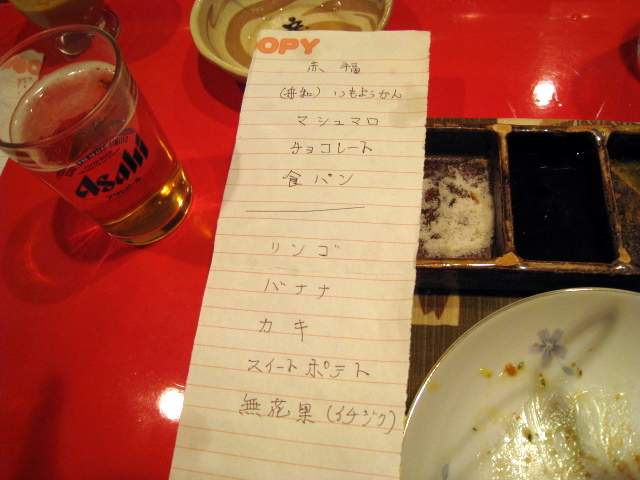 OPY
赤福
(舟和) いもようかん
マシュマロ
チョコレート
食パン
リンゴ
バナナ
カキ
スイートポテト
無花果(イチジク)
Asahi
アサヒビール